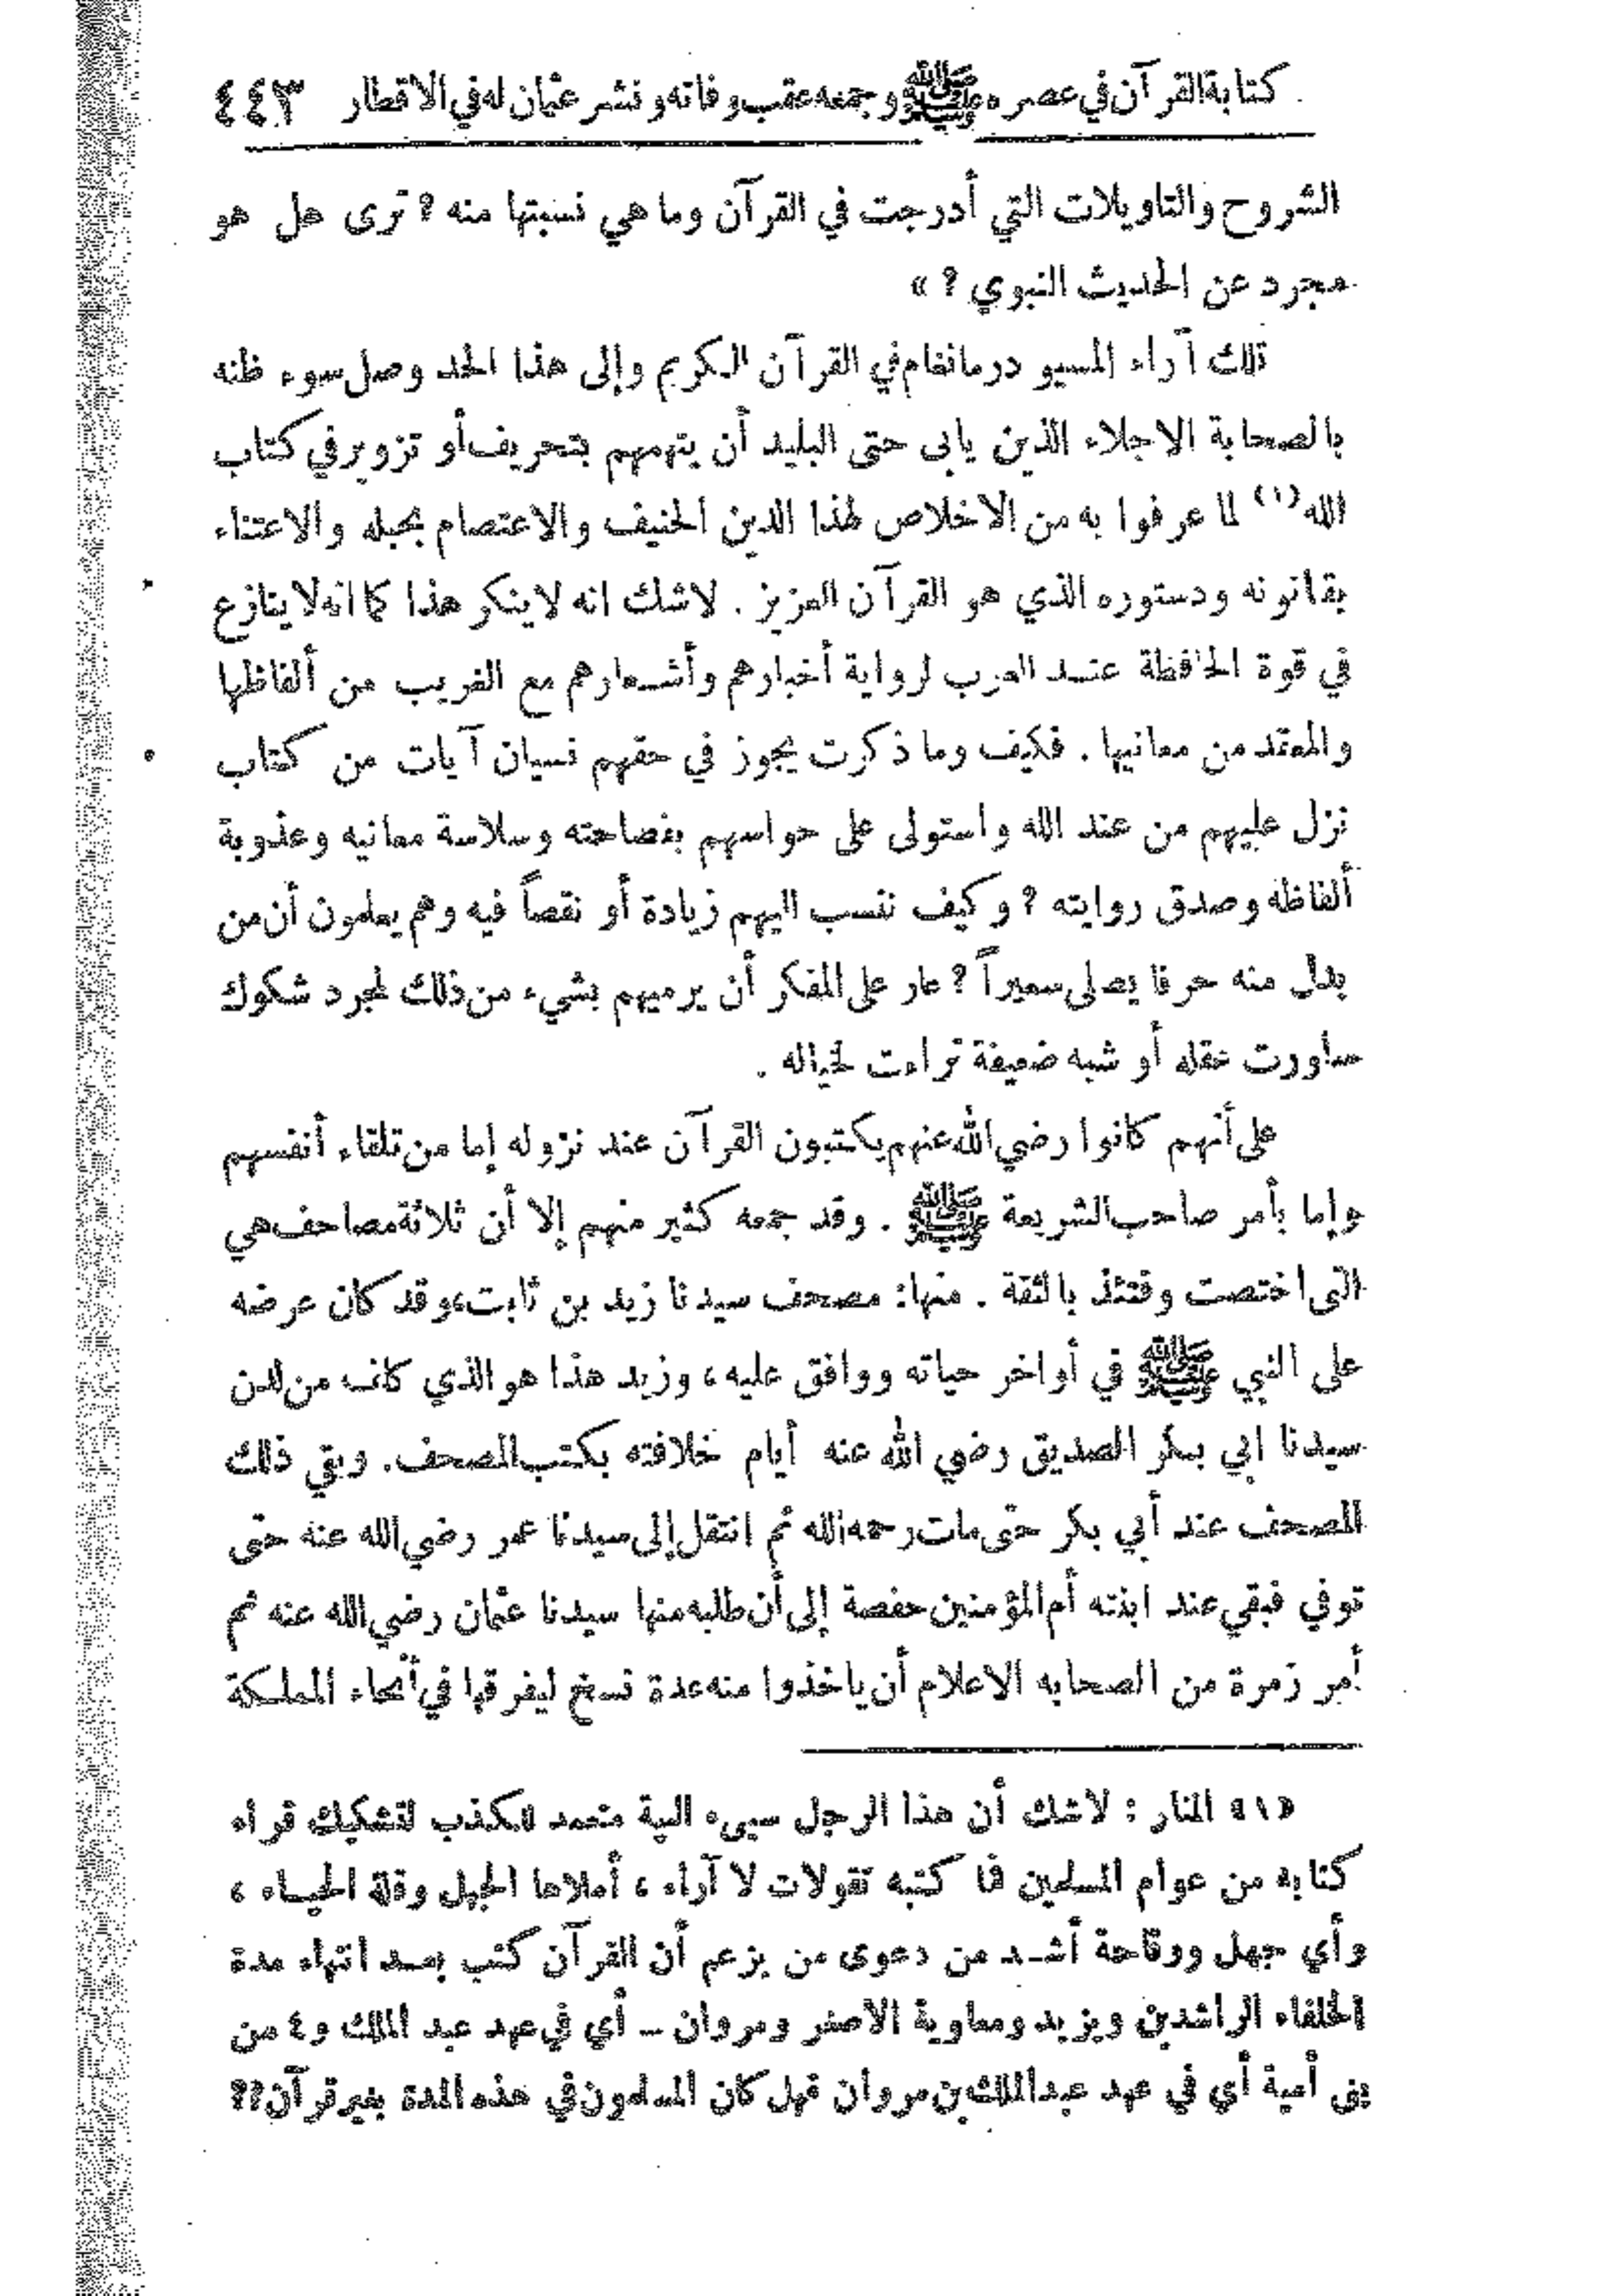 كتابة القرآن في عصره ﷺ وجمعه عقب وفاته ونشر عثمان له في الاقطار ٤٤٣
الشروح والتاويلات التي أدرجت في القرآن وما هي نسبتها منه ? ترى هل هو
مجرد عن الحديث النبوي ? »
تلك آراء المسيو درمانغام في القرآن الكريم وإلى هذا الحد وصل سوء ظنه
بالصحابة الاجلاء الذين يابى حتى البليد أن يتهمهم بتحريف أو تزوير في كتاب
الله (١) لما عرفوا به من الاخلاص لهذا الدين الحنيف والاعتصام بحبله والاعتناء
بقانونه ودستوره الذي هو القرآن العزيز . لاشك انه لاينكر هذا كما انه لا ينازع
في قوة الحافظة عند العرب لرواية أخبارهم وأشعارهم مع الغريب من ألفاظها
والمعقد من معانيها . فكيف وما ذكرت يجوز في حقهم نسيان آيات من كتاب
نزل عليهم من عند الله واستولى على حواسهم بفصاحته وسلاسة معانيه وعذوبة
ألفاظه وصدق روايته ? وكيف ننسب اليهم زيادة أو نقصاً فيه وهم يعلمون أن من
بدل منه حرفا يصلى سعيراً ? عار على المفكر أن يرميهم بشيء من ذلك لمجرد شكوك
ساورت عقله أو شبه ضعيفة تراءت لخياله .
على أنهم كانوا رضي الله عنهم يكتبون القرآن عند نزوله إما من تلقاء أنفسهم
وإما بأمر صاحب الشريعة ﷺ . وقد جمعه كثير منهم إلا أن ثلاثة مصاحف هي
التى اختصت وقتئذ بالثقة . منها: مصحف سيدنا زيد بن ثابت، وقد كان عرضه
على النبي ﷺ في أواخر حياته ووافق عليه ، وزيد هذا هو الذي كلف من لدن
سيدنا ابي بكر الصديق رضي الله عنه أيام خلافته بكتب المصحف. وبقي ذلك
المصحف عند أبي بكر حتى مات رحمه الله ثم انتقل إلى سيدنا عمر رضي الله عنه حتى
توفي فبقي عند ابنته أم المؤمنين حفصة إلى أن طلبه منها سيدنا عثمان رضي الله عنه ثم
أمر زمرة من الصحابه الاعلام أن ياخذوا منه عدة نسخ ليفرقها في أنحاء المملكة
«١» المنار : لاشك أن هذا الرجل سيء النية متعمد للكذب لتشكيك قراء
كتابه من عوام المسلمين فما كتبه تقولات لا آراء ، أملاها الجهل وقلة الحياء ،
وأي جهل ووقاحة أشد من دعوى من يزعم أن القرآن كتب بعد انتهاء مدة
الخلفاء الراشدين ويزيد ومعاوية الاصغر ومروان ــ أي في عهد عبد الملك و٤ من
بني أمية أي في عهد عبد الملك بن مروان فهل كان المسلمون في هذه المدة بغير قرآن??